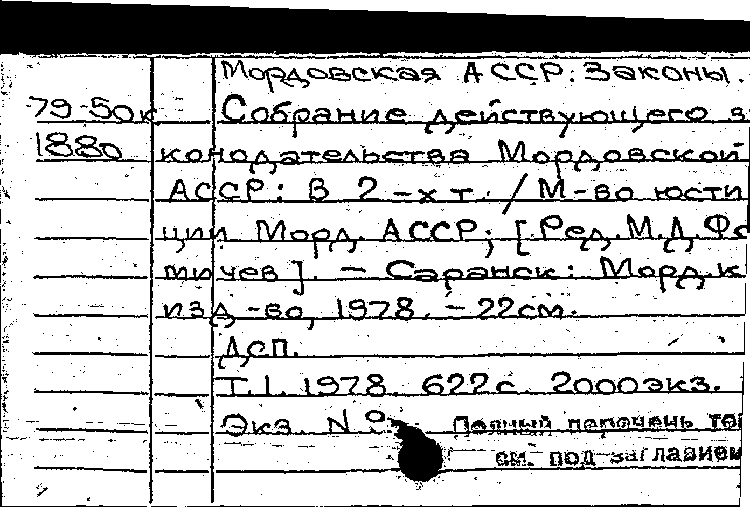 Мордовская АССР. Законы.
79-50к Собрание действующего з
1880 конодательства Мордовской
АССР: В 2-х т. / М-во юсти
ции Морд. АССР; [Ред. М.Д. Фо
мичев]. - Саранск: Морд. к
изд-во, 1978. - 22см.
Дсп.
Т.1. 1978. 622с. 2000экз.
Экз. N 9
Полный перечень то
см. под заглавием